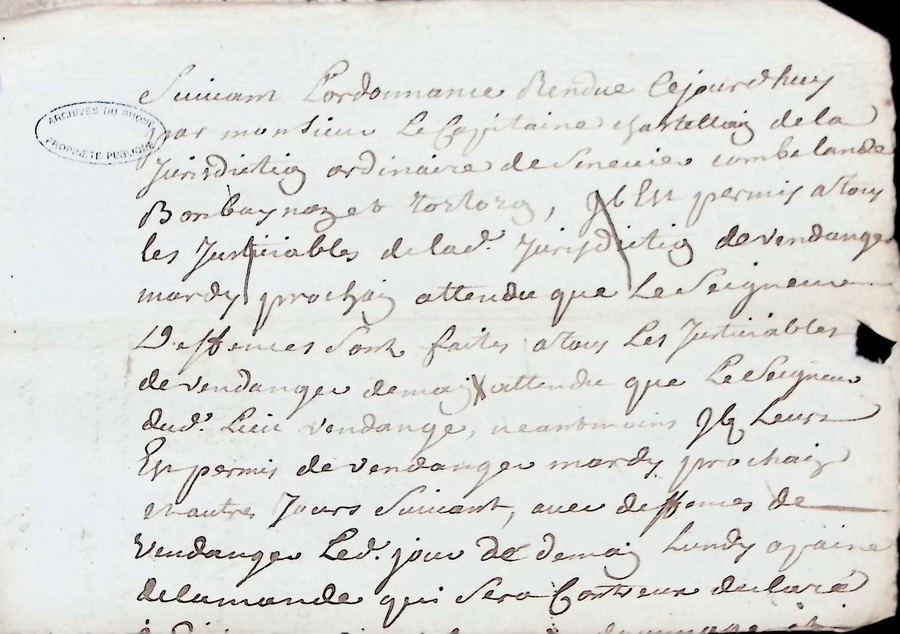 Suivant Lordonnance Rendue Cejourdhuy
ARCHIVES DU RHONE
PROPRIETE PUBLIQUE
par monsieur Le Capitaine chastellain de la
Jurisdiction ordinaire de combelande
Il Est permis a tous
les Justiciables de lad. Jurisdiction de vendanger
mardy prochain attendu que Le Seigneur
Deffences Sont faites a tous Les Justiciables
de vendanger demain attendu que Le Seigneur
dud. Lieu vendange, neantmoins Il Leurs
Est permis de vendanger mardy prochain
et autres Jours Suivant, avec deffences de
vendanger Led. jour de demain Lundy a paine
de lamande qui Sera Contreux declarée